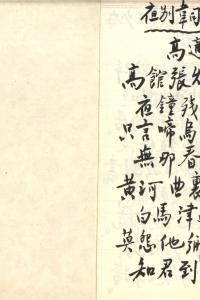 夜别韋司
高適
高館張
夜鐘残
只言啼鳥
無那春
黄河曲裏
白馬津
莫怨他
知君到